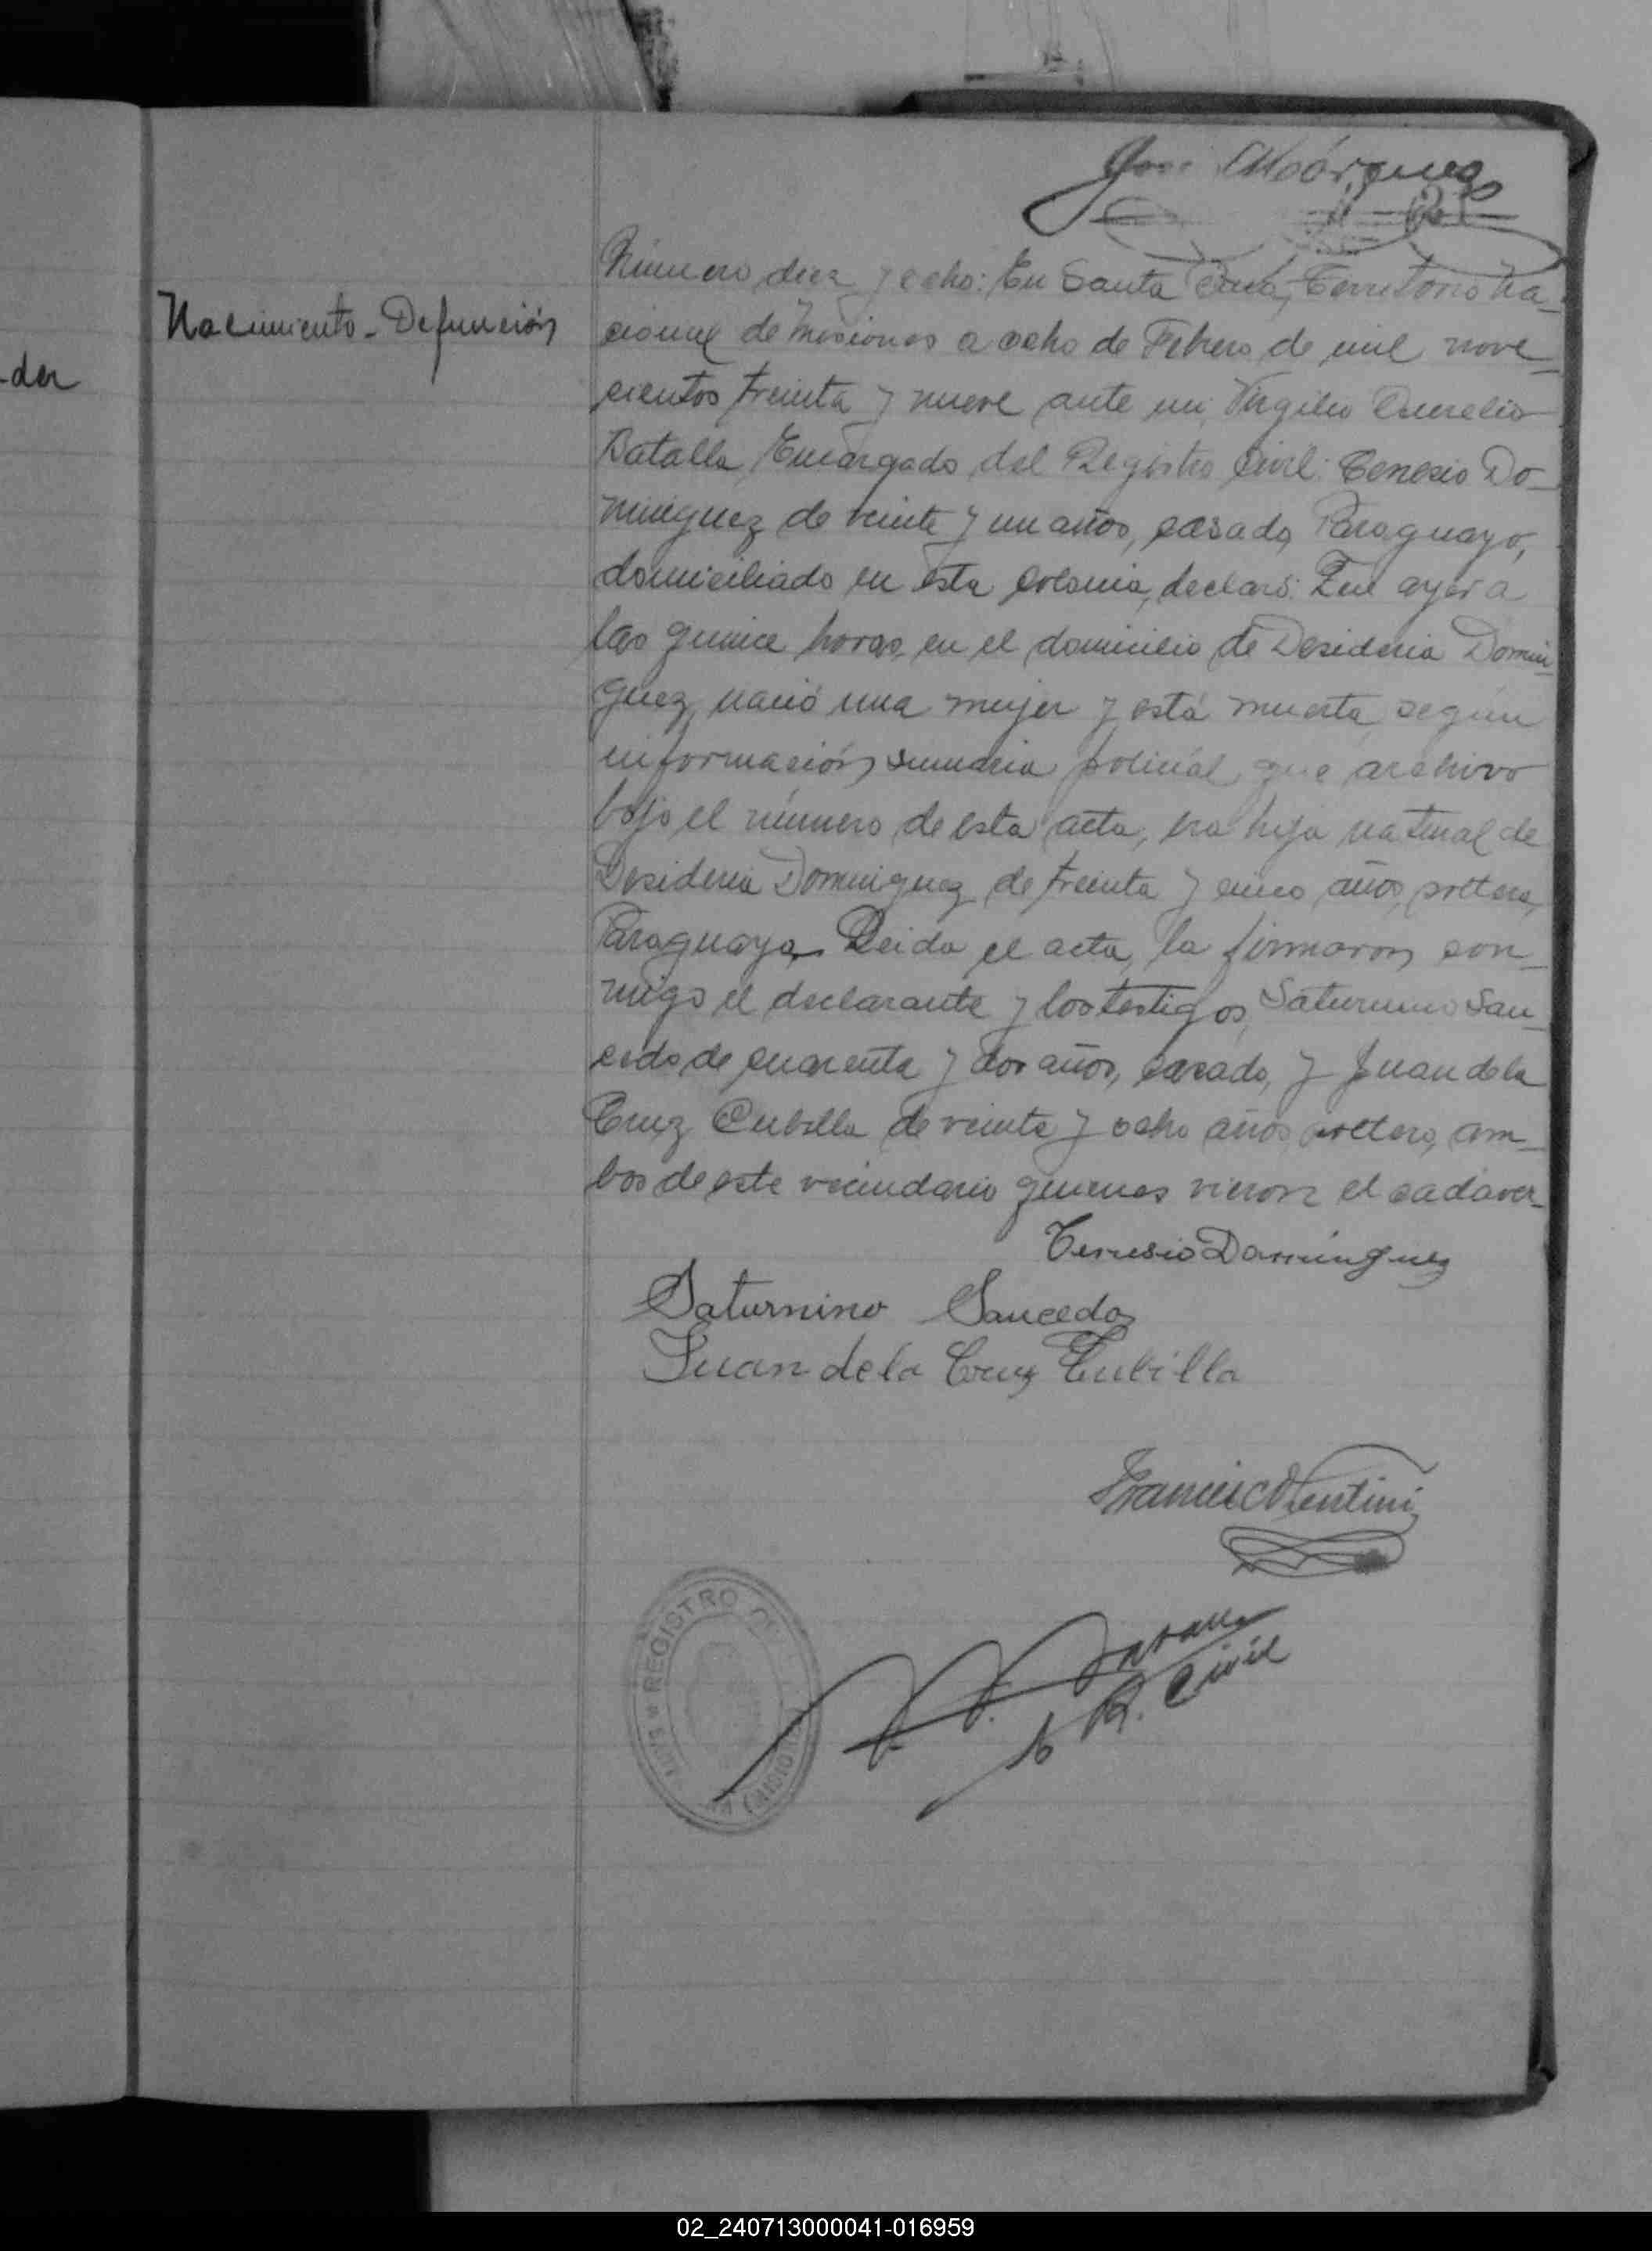 José Márquez
Número diez y ocho: En Santa Ana, Territorio Na-
cional de Misiones a ocho de Febrero de mil nove-
Nacimiento - Defunción
-der
cientos treinta y nueve ante mi, Virgilio Aurelio
Batalla, Encargado del Registro Civil: Cenesio Do-
minguez de veinte y un años, casado, Paraguayo,
domiciliado en esta colonia, declaró: Que ayer a
las quince horas, en el domicilio de Desideria Domin-
guez, nació una mujer y está muerta, según
información sumaria policial que archivo
bajo el número de esta acta, era hija natural de
Desideria Dominguez de treinta y cinco años, soltera,
Paraguaya. Leida el acta, la firmaron con-
migo el declarante y los testigos, Saturnino Sau-
cedo de cuarenta y dos años, casado, y Juan de la
Cruz Cubilla de veinte y ocho años, soltero, am-
bos de este vecindario quienes vieron el cadaver-
Cenesio Dominguez
Saturnino Saucedo
Juan de la Cruz Cubilla
REGISTRO
R. Civil
02_240713000041-016959